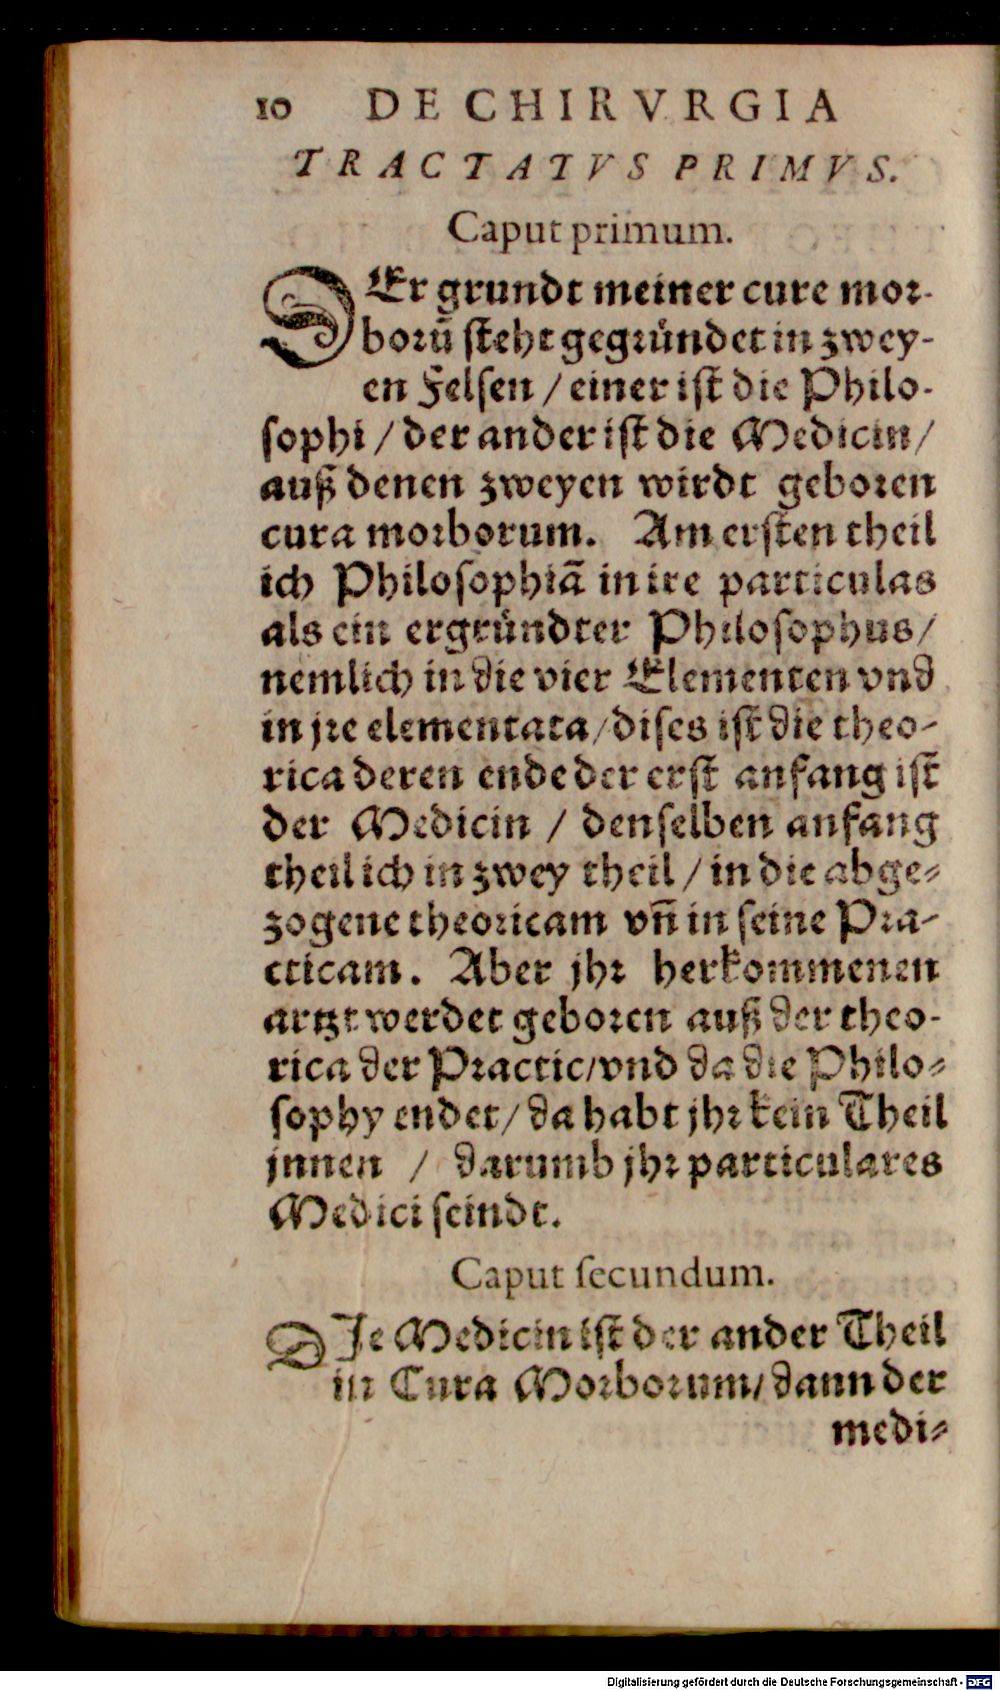 10 DE CHIRVRGIA
TRACTATVS PRIMVS.
Caput primum.
DEr grundt meiner cure mor-
borū steht gegründet in zwey-
en Felsen / einer ist die Philo-
sophi / der ander ist die Medicin /
auß denen zweyen wirdt geboren
cura morborum. Am ersten theil
ich Philosophiā in ire particulas
als ein ergründter Philosophus /
nemlich in die vier Elementen vnd
in jre elementata / dises ist die theo-
rica deren ende der erst anfang ist
der Medicin / denselben anfang
theil ich in zwey theil / in die abge-
zogene theoricam vñ in seine Pra-
cticam. Aber jhr herkommenen
artzt werdet geboren auß der theo-
rica der Practic / vnd da die Philo-
sophy endet / da habt jhr kein Theil
jnnen / darumb jhr particulares
Medici seindt.
Caput secundum.
DIe Medicin ist der ander Theil
in Cura Morborum / dann der
medi-
Digitalisierung gefördert durch die Deutsche Forschungsgemeinschaft - DFG